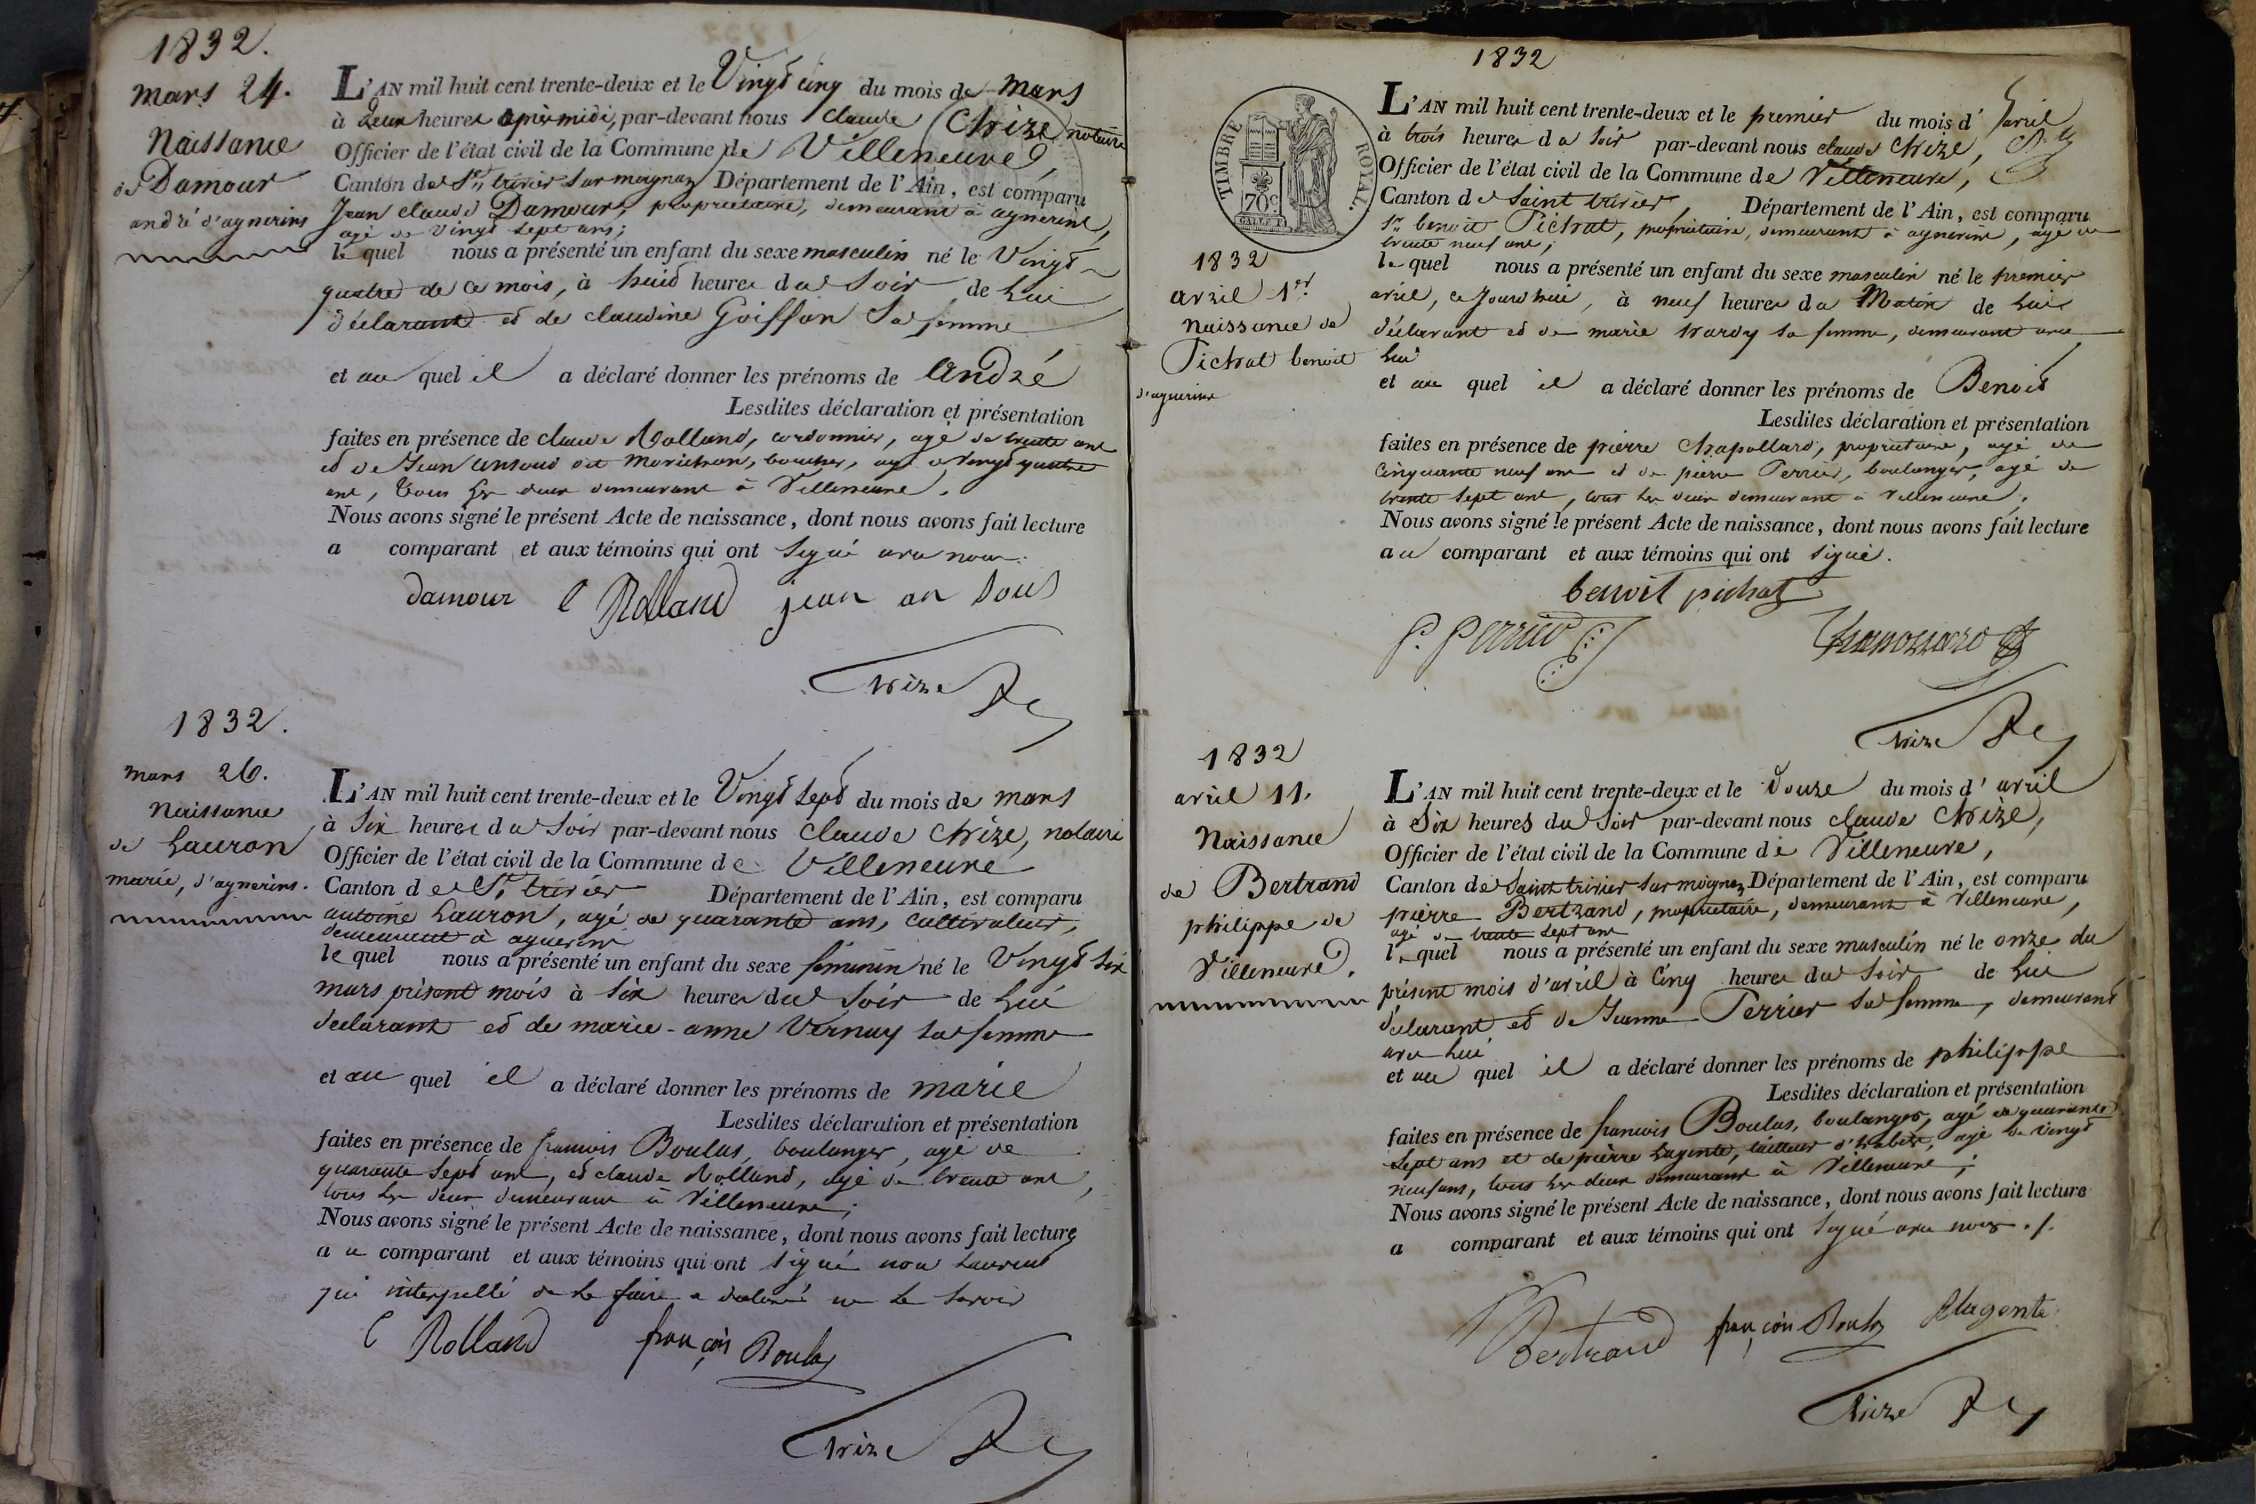 1832.
mars 24.
Naissance
de Damour
andré d'aynerins
L'AN mil huit cent trente-deux et le Vingt cinq du mois de mars
à Deux heures après midi, par-devant nous Claude Chize notaire
Officier de l'état civil de la Commune de Villeneuve,
Canton de St trivier sur moignan Département de l'Ain, est comparu
Jean claude Damour, propriétaire, demeurant à aynerins,
agé de vingt sept ans;
le quel nous a présenté un enfant du sexe masculin né le Vingt
quatre de ce mois, à huit heures du Soir de Lui
déclarant et de claudine Goiffon Sa femme
et au quel il a déclaré donner les prénoms de André
Lesdites déclaration et présentation
faites en présence de claude Rolland, cordonnier, agé de trente ans
et de Jean ansoud dit Morichon, boucher, agé de vingt quatre
ans, tous les deux demeurant à Villeneuve.
Nous avons signé le présent Acte de naissance, dont nous avons fait lecture
a comparant et aux témoins qui ont Signé avec nous.
damour C Rolland jean an Soud
Chize
1832.
mars 26.
Naissance
de Lauron
marie, d'aynerins.
L'AN mil huit cent trente-deux et le Vingt Sept du mois de mars
à Six heures du Soir par-devant nous Claude Chize, notaire
Officier de l'état civil de la Commune de Villeneuve
Canton de St trivier Département de l'Ain, est comparu
antoine Lauron, agé de quarante ans, Cultivateur,
demeurant à aynerins
le quel nous a présenté un enfant du sexe féminin né le Vingt Six
mars présent mois à Six heures du Soir de Lui
déclarant et de marie-anne Vernay Sa femme
et au quel il a déclaré donner les prénoms de marie
Lesdites déclaration et présentation
faites en présence de francois Boulas, boulanger, agé de
quarante Sept ans, et claude Rolland, agé de trente ans,
tous les deux demeurant à Villeneuve;
Nous avons signé le présent Acte de naissance, dont nous avons fait lecture
au comparant et aux témoins qui ont Signé non
qui interpellé de le faire a déclaré ne le Savoir
C Rolland françois Boulas
Chize
1832
TIMBRE ROYAL.
70c
1832
avril 1er
Naissance de
Pichat benoit
d'aynerins
L'AN mil huit cent trente-deux et le premier du mois d'avril
à trois heures du Soir par-devant nous claude Chize,
Officier de l'état civil de la Commune de Villeneuve,
Canton de Saint trivier, Département de l'Ain, est comparu
Sr benoit Pichat, propriétaire, demeurant à aynerins, agé de
trente neuf ans,
le quel nous a présenté un enfant du sexe masculin né le premier
avril, ce Jourd'hui, à neuf heures du Matin de Lui
déclarant et de marie hardy Sa femme, demeurant avec
Lui
et au quel il a déclaré donner les prénoms de Benoit
Lesdites déclaration et présentation
faites en présence de pierre Chapollard, propriétaire, agé de
Cinquante neuf ans et de pierre Perrier, boulanger, agé de
trente Sept ans, tous les deux demeurant à Villeneuve.
Nous avons signé le présent Acte de naissance, dont nous avons fait lecture
au comparant et aux témoins qui ont signé.
benoit pichat
P. Perrier
Chize
1832
avril 11.
Naissance
de Bertrand
philippe de
Villeneuve.
L'AN mil huit cent trente-deux et le Douze du mois d'avril
à Six heures du Soir par-devant nous claude Chize,
Officier de l'état civil de la Commune de Villeneuve,
Canton de Saint trivier sur moignan Département de l'Ain, est comparu
pierre Bertrand, propriétaire, demeurant à Villeneuve,
agé de trente Sept ans
le quel nous a présenté un enfant du sexe masculin né le onze du
présent mois d'avril à Cinq heures du Soir de Lui
déclarant et de Jeanne Perrier Sa femme, demeurant
avec Lui,
et au quel il a déclaré donner les prénoms de philippe
Lesdites déclaration et présentation
faites en présence de francois Boulas, boulanger, agé de quarante
Sept ans et de pierre Lagente, tailleur d'habits, agé de vingt
neuf ans, tous les deux demeurant à Villeneuve;
Nous avons signé le présent Acte de naissance, dont nous avons fait lecture
a comparant et aux témoins qui ont Signé avec nous ./.
Bertrand françois Boulas Lagente
Chize